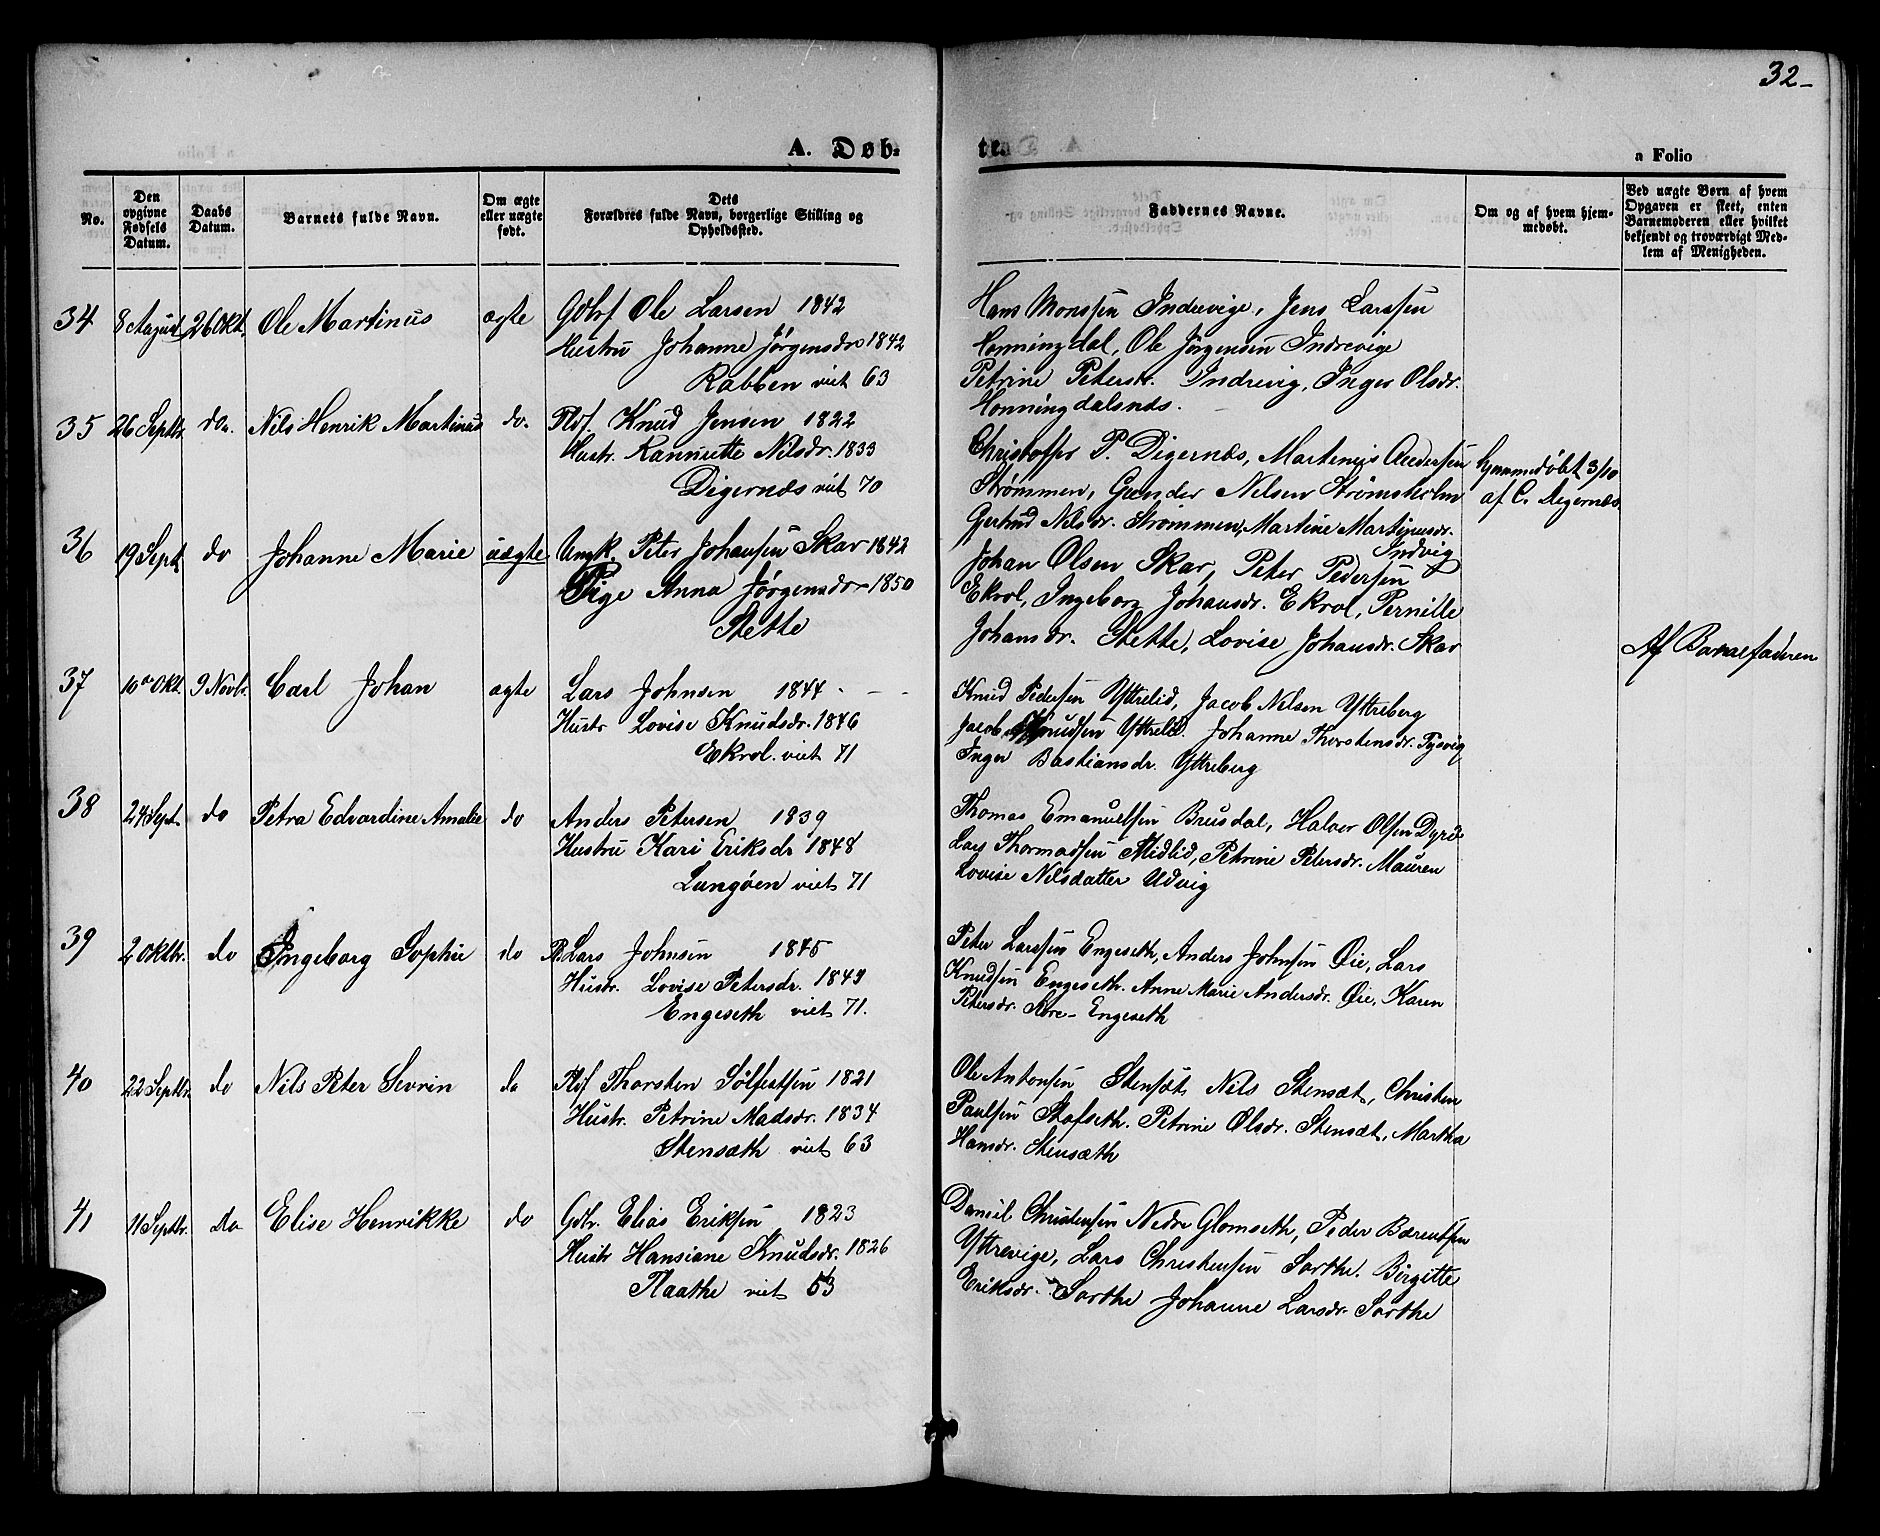 32-
A. Døb-
te.
a Folio
No.
Den opgivne Fødsels Datum.
Daabs Datum.
Barnets fulde Navn.
Om ægte eller uægte født.
Dets Forældres fulde Navn, borgerlige Stilling og Opholdssted.
Faddernes Navne.
Om og af hvem hjemmedøbt.
Ved uægte Børn af hvem Opgaven er skeet, enten Barnemoderen eller hvilket bekjendt og troværdigt Medlem af Menigheden.
34 8 August 26 Okt. Ole Martinus ægte Gdbr Ole Larsen 1842
Hustru Johanne Jørgensdr 1842
Rabben viet 63
Hans Monssen Indrevige, Jens Larssen
Honningdal, Ole Jørgensen Indrevige
Petrine Petersdr. Indrevig, Inger Olsdr.
Honningdalsnæs.
35 26 Septbr. do. Nils Henrik Martinus do. Knud Jensen 1822
Hustr. Rannutte Nilsdr. 1833
Digernæs viet 70
Christoffer P. Digernæs, Martenius Andersen
Strømmen, Gunder Nilsen Strømsholm
Gertrud Nilsdr. Strømmen, Martine Martinusdr.
Indvig
hjemmedøbt 3/10
af C. Digernæs.
36 19 Sept. do Johanne Marie uægte Ungk. Peter Johansen Skar 1842
Pige Anna Jørgensdr 1850
Stette
Johan Olsen Skar, Peter Pedersen
Ekrol, Ingeborg Johansdr. Ekrol, Pernille
Johansdr. Stette, Lovise Johansdr. Skar
Af Barnefaderen
37 10 Okt. 9 Novbr. Carl Johan ægte Lars Johnsen 1844
Hustr Lovise Knudsdr. 1846
Ekrol. viet 71
Knud Pedersen Yttrelid, Jacob Nilsen Yttreberg
Jacob Knudsen Yttrelid. Johanne Thorstensdr.
Inger Bastiansdr. Yttreberg
38 24 Sept. do Petra Edvardine Amalie do Anders Petersen 1839
Hustru Kari Eriksdr 1848
Langøen viet 71
Thomas Emanuelsen Brusdal, Halvor Olsen
Lars Thormodsen Midtlid, Petrine Petersdr. Mauren
Lovise Nilsdatter Udvig
39 2 Oktbr. do Ingeborg Sophie do Lars Johnsen 1845
Hustr. Lovise Petersdr. 1849
Engeseth viet 71.
Peter Larssen Engeseth, Anders Johnsen Øie, Lars
Knudsen Engeseth. Anne Marie Andersdr. Øie, Karen
Petersdr. Engeseth
40 22 Septbr. do Nils Peter Sevrin do Thorsten Sølfestsen 1821
Hustr. Petrine Madsdr. 1834
Stensæth viet 63
Ole Antonsen Stensæt Nils Stensæt, Christen
Paulsen Stafseth. Petrine Olsdr. Stensæt, Martha
Hansdr. Stensæth
41 11 Septbr. do Elise Henrikke do Gdbr. Elias Eriksen 1823
Hustr Hansiane Knudsdr. 1826
Flaathe viet 53
Daniel Christensen Nedre Glomseth, Peder Bærentsen
Yttrevige, Lars Christensen Sorthe. Birgitte
Eriksdr. Sorthe Johanne Larsdr. Sorthe